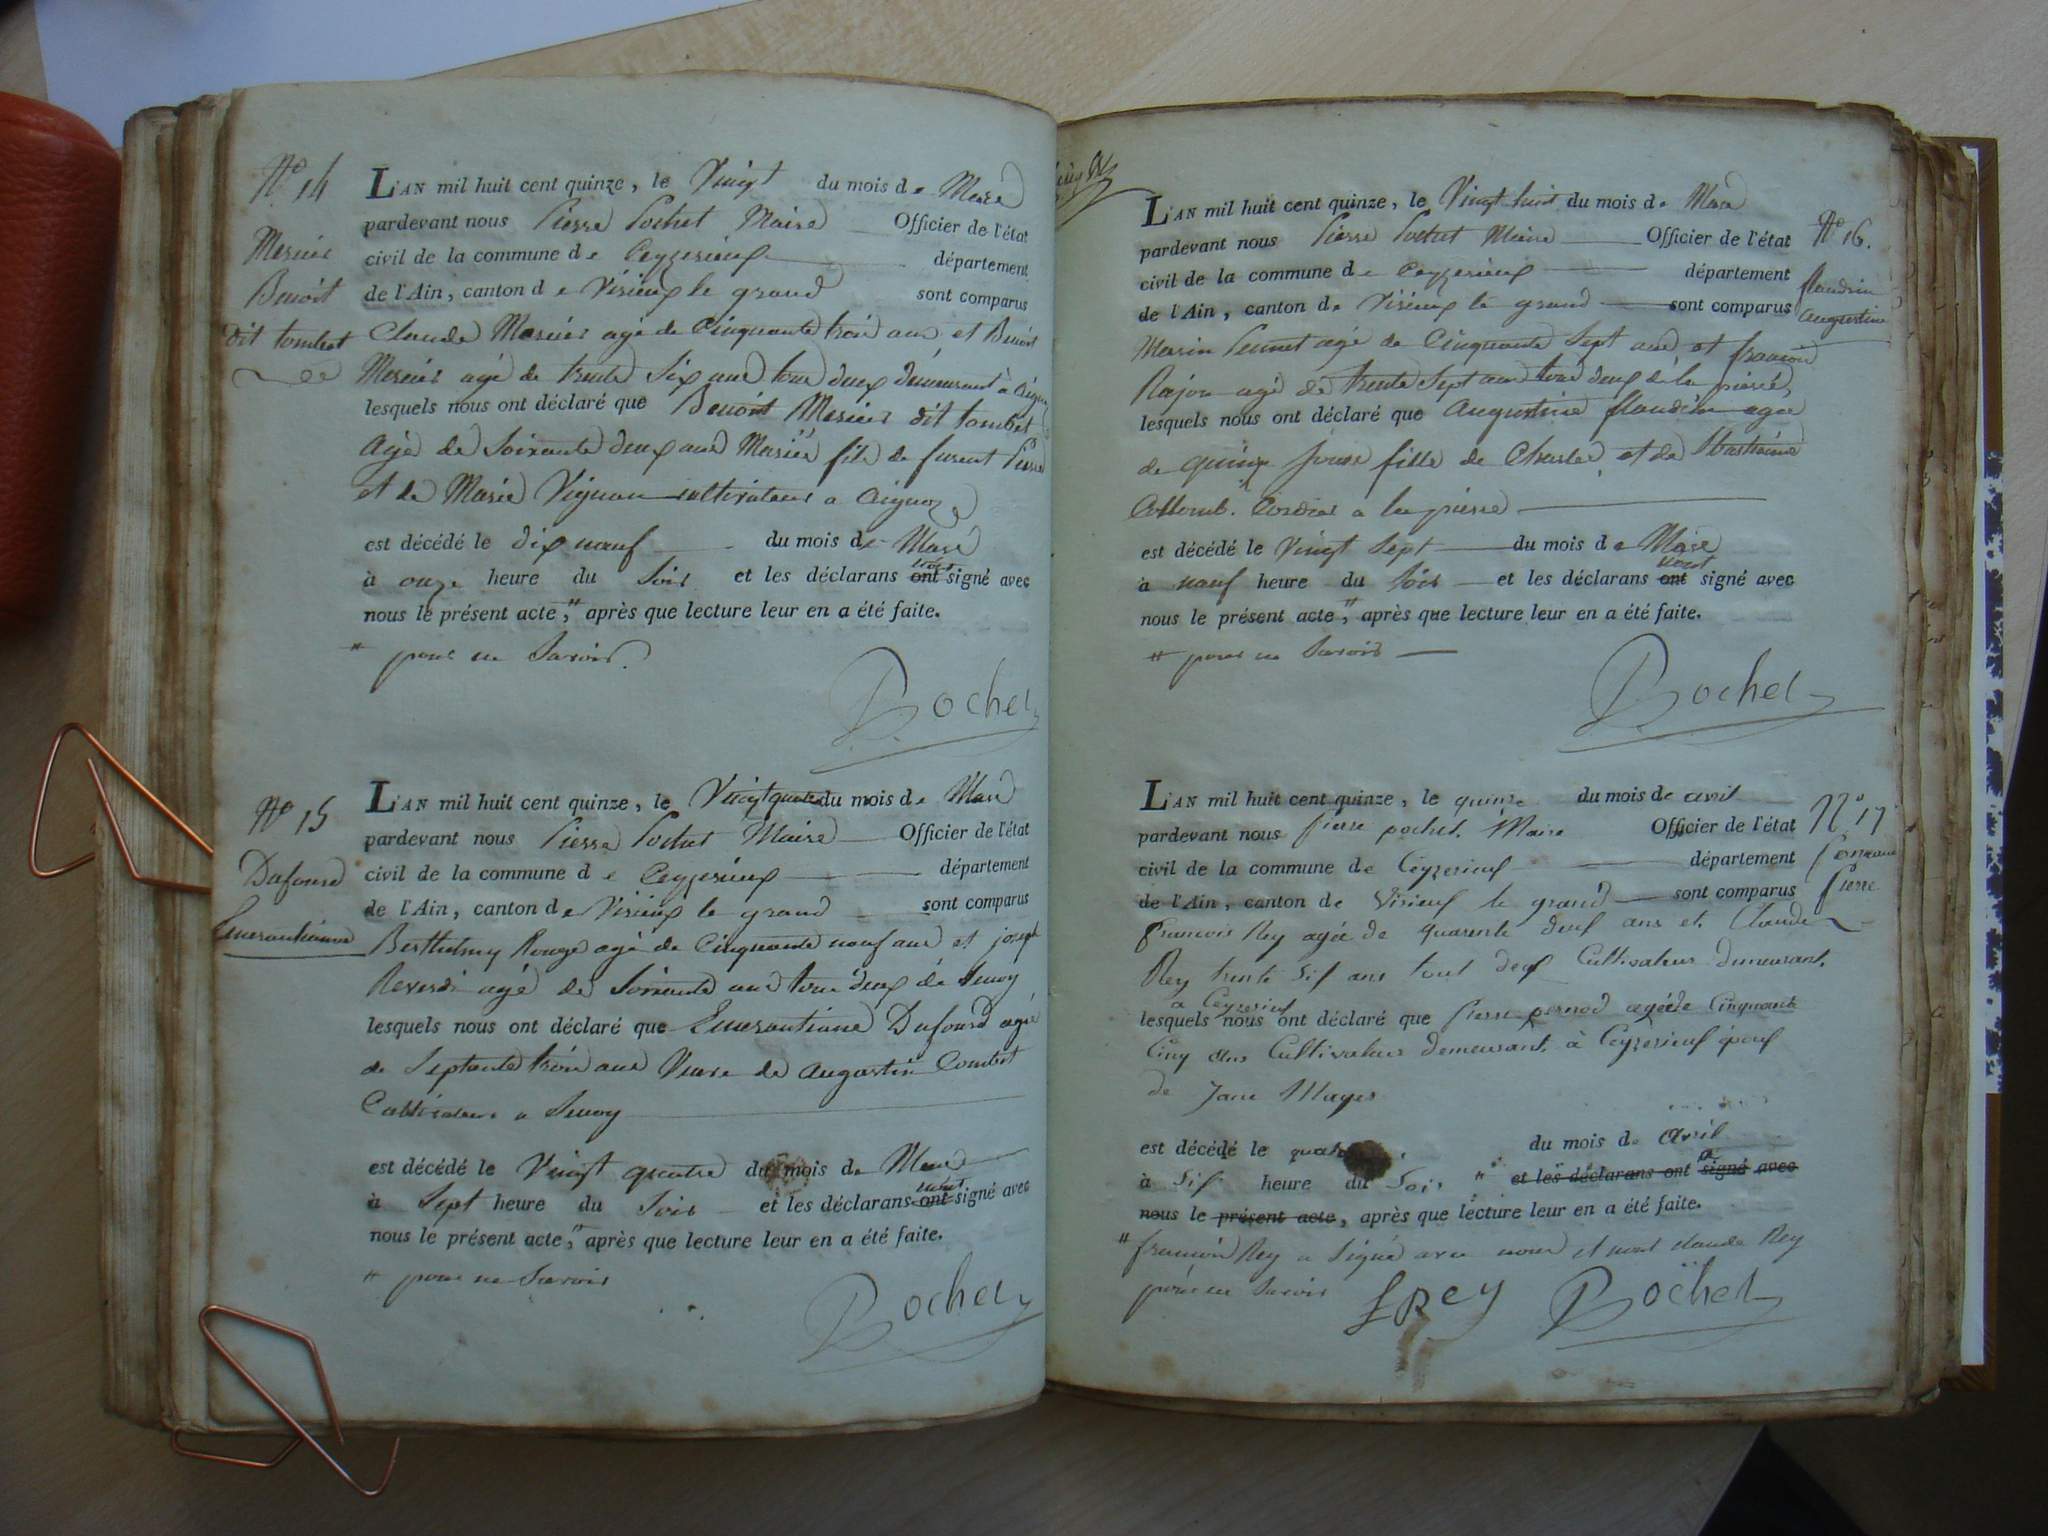 N.° 14
Mercier
Benoit
dit tombet
L'AN mil huit cent quinze, le Vingt du mois de Mars
pardevant nous Pierre Pochet Maire Officier de l'état
civil de la commune de Ceyzerieux département
de l'Ain, canton de Virieux le grand sont comparus
Claude Mercier agé de Cinquante trois ans et Benoit
Mercier agé de trente Six ans tous deux demeurant à Aignoz
lesquels nous ont déclaré que Benoit Mercier dit tombet
Agé de Soixante deux ans Mariée fils de furent Pierre
et de Marie Vignan cultivateur a Aignoz
est décédé le dix neuf du mois de Mars
à onze heure du Soir et les déclarans ont n'ont signé avec
nous le présent acte, " après que lecture leur en a été faite.
" pour ne Savoir.
Pochet
N.° 15
Dufourd
Emerantianne
L'AN mil huit cent quinze, le Vingt quatre du mois de Mars
pardevant nous Pierre Pochet Maire Officier de l'état
civil de la commune de Ceyzerieux département
de l'Ain, canton de Virieux le grand sont comparus
Berthelmy Rouge agé de Cinquante neuf ans et joseph
Reverdi agé de Soixante ans tous deux de
lesquels nous ont déclaré que Emerantiane Dufourd agée
de Septante trois ans Veuve de Augustin Combet
Cultivateur a
est décédé le Vingt quatre du mois de Mars
à Sept heure du Soir et les déclarans ont n'ont signé avec
nous le présent acte, " après que lecture leur en a été faite.
" pour ne Savoir
Pochet
L'AN mil huit cent quinze, le Vingt huit du mois de Mars
pardevant nous Pierre Pochet Maire Officier de l'état
civil de la commune de Ceyzerieux département
de l'Ain, canton de Virieux le grand sont comparus
N.° 16.
flandrin
Augustine
Marin Pennet agé de Cinquante Sept ans et francois
Rajon agé de trente Sept ans tous deux de la pierre,
lesquels nous ont déclaré que Augustine flandrin agée
de quinze jours fille de Charles et de
Collomb. Cordier a la pierre
est décédé le Vingt Sept du mois de Mars
à neuf heure du Soir et les déclarans ont n'ont signé avec
nous le présent acte, " après que lecture leur en a été faite.
" pour ne Savoir
Pochet
L'AN mil huit cent quinze, le quinze du mois de avril
pardevant nous pierre pochet. Maire Officier de l'état
civil de la commune de Ceyzerieux département
de l'Ain, canton de Virieux le grand sont comparus
N.° 17
Pierre
francois Rey agée de quarente deux ans et. Claude
Rey trente six ans tout deux Cultivateur demeurant.
a Ceyzerieux
lesquels nous ont déclaré que pierre pernod agée de Cinquante
Cinq ans Cultivateur demeurant. à Ceyzerieux époux
de Jane Mayer
est décédé le du mois de avril
à Six heure du Soir " et les déclarans ont a signé avec
nous le présent acte, après que lecture leur en a été faite.
" francois Rey a Signé avec nous et nont claude Rey
pour ne Savoir
f Rey Pochet